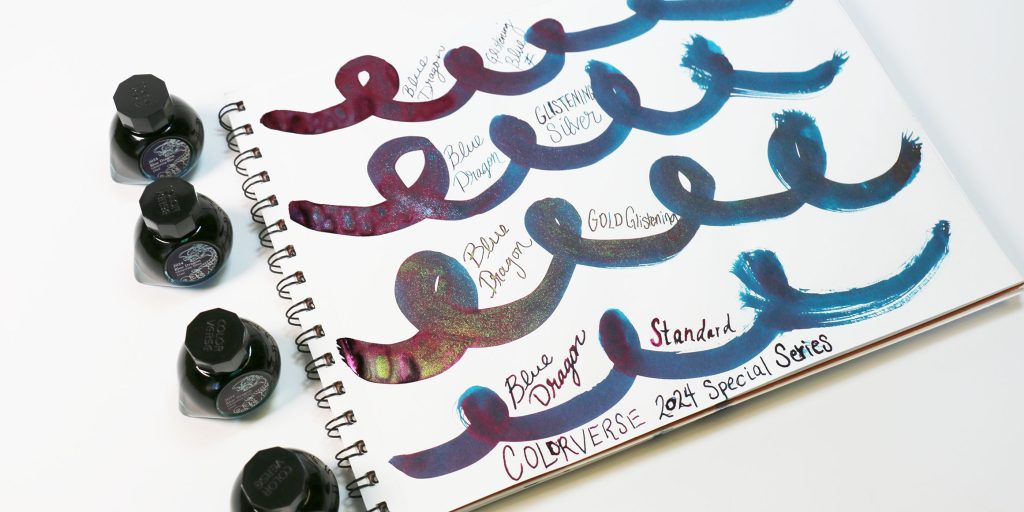 Blue
Dragon
Glistening
Blue
Blue
Dragon
GLISTENING
Silver
Blue
Dragon
GOLD Glistening
Blue
Dragon
Standard
COLORVERSE 2024 Special Series
COLOR
VERSE
COLOR
VERSE